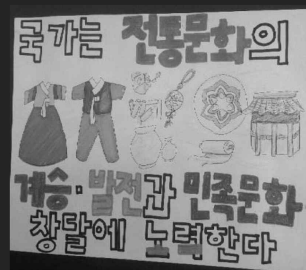 국가는 전통문화의
계승·발전과 민족문화
창달에 노력한다